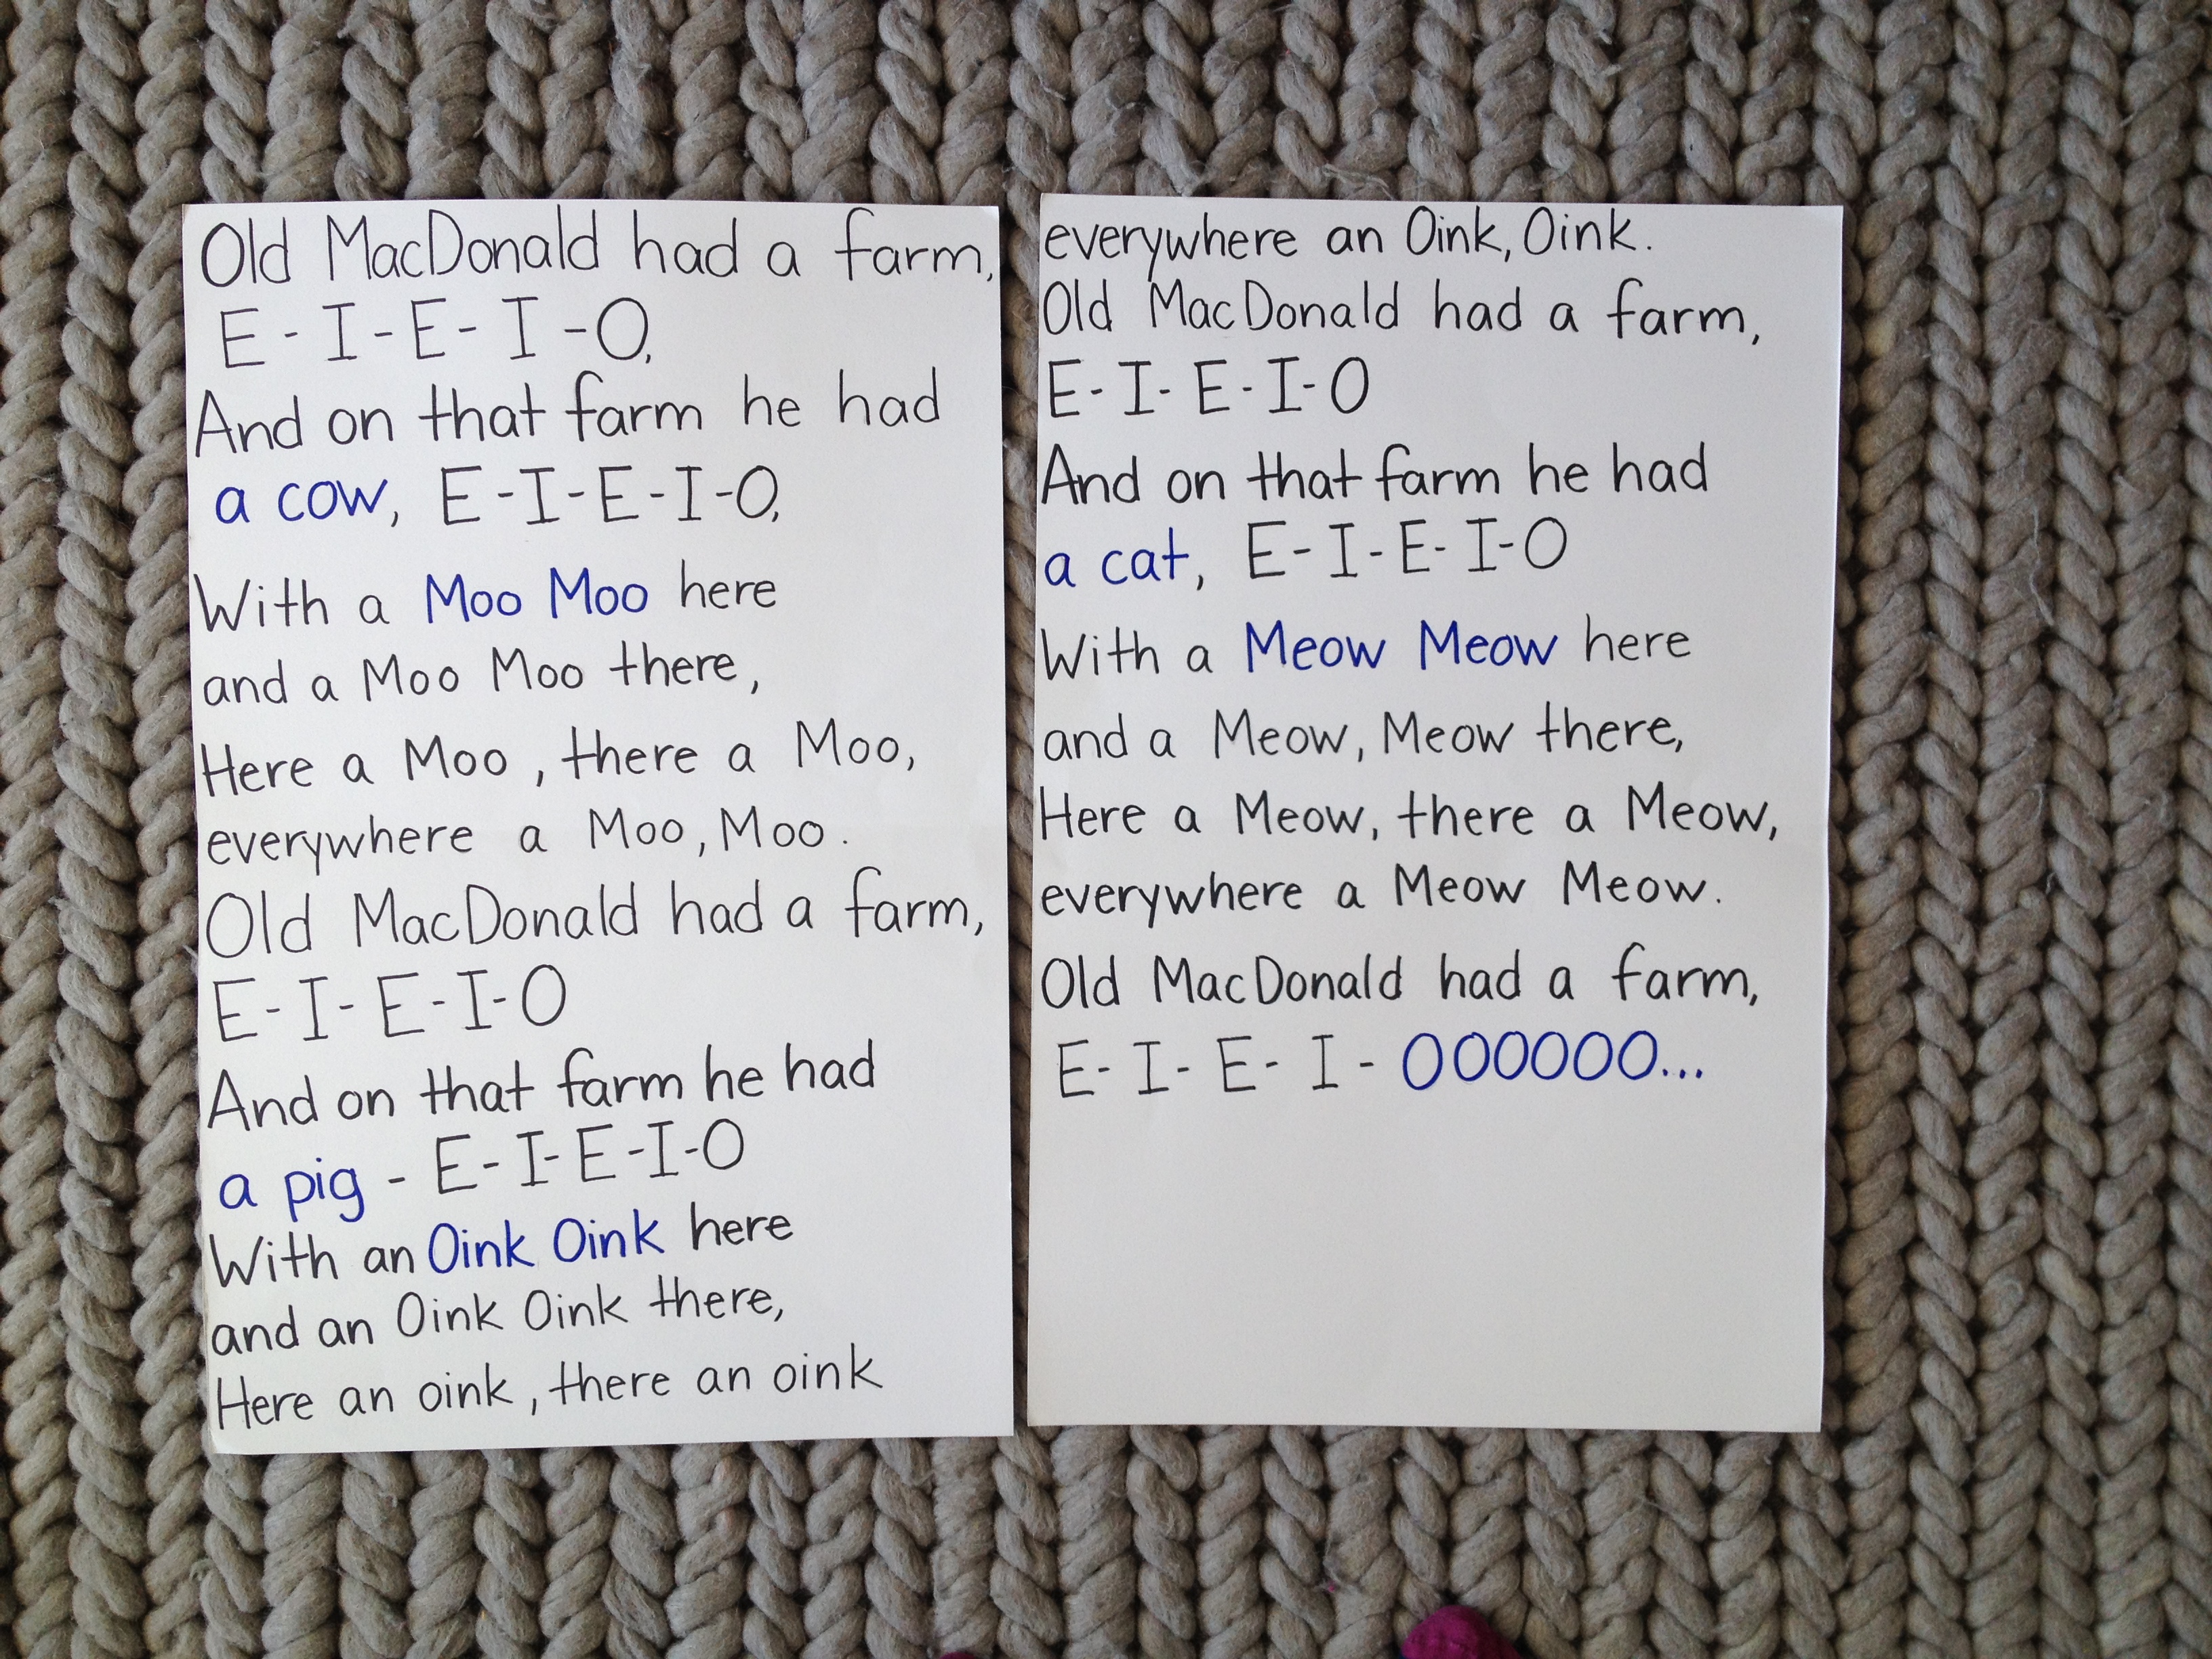 Old MacDonald had a farm,
E-I-E-I-O,
And on that farm he had
a cow, E-I-E-I-O,
With a Moo Moo here
and a Moo Moo there,
Here a Moo, there a Moo,
everywhere a Moo, Moo.
Old MacDonald had a farm,
E-I-E-I-O
And on that farm he had
a pig - E-I-E-I-O
With an Oink Oink here
and an Oink Oink there,
Here an oink, there an oink
everywhere an Oink, Oink.
Old MacDonald had a farm,
E-I-E-I-O
And on that farm he had
a cat, E-I-E-I-O
With a Meow Meow here
and a Meow, Meow there,
Here a Meow, there a Meow,
everywhere a Meow Meow.
Old MacDonald had a farm,
E-I-E-I-OOOOOO...